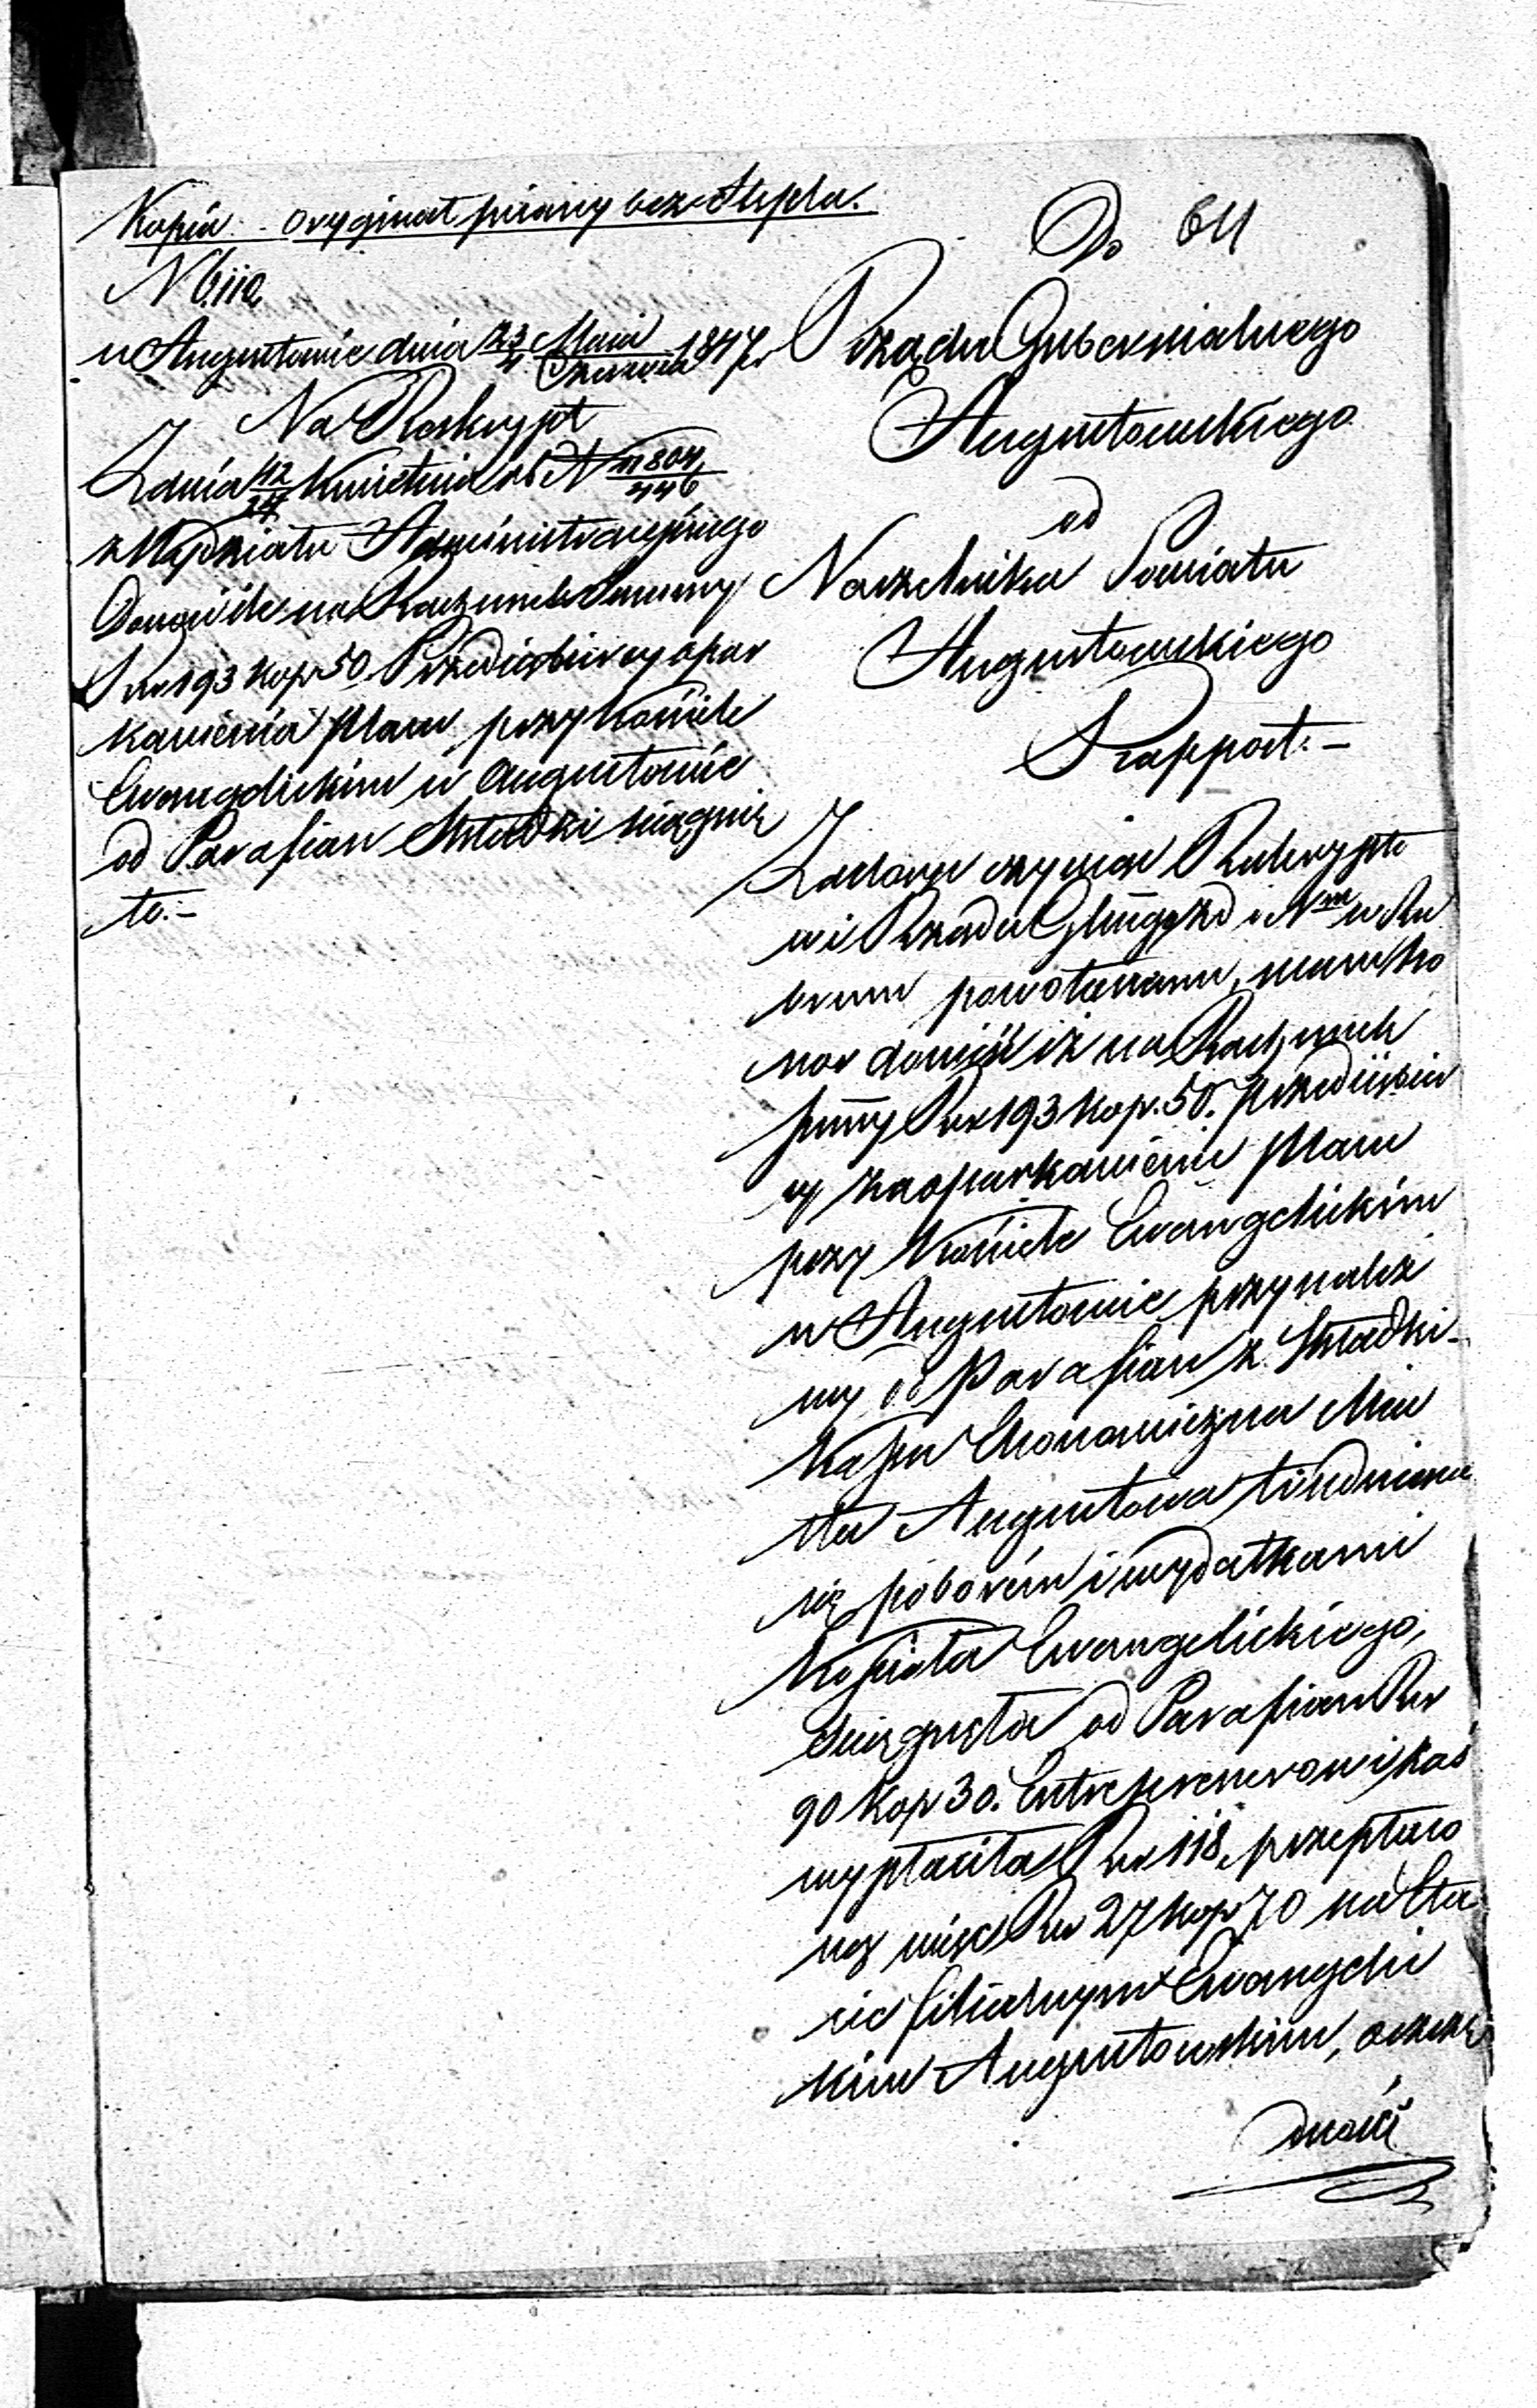 Kopia. Oryginał pisany bez Stępla.
N 6112
w Augustowie dnia 23/4 Maia/Czerwca 1847 r
Na Reskrypt
Z dnia 12/24 Kwietnia rb N 11804/446
z Wydziału Administracyjnego
Donosi ile na Rachunek Summy
Rsr 193 kop 50 Przedsiębiercy opar
kanienia Placu przy Kościele
Ewangelickim w Augustowie
od Parafian Składki ściągnię
to.-
Do 64
Rządu Gubernialnego
Augustowskiego
od
Naczelnika Powiatu
Augustowskiego
Rapport.-
Zadosyć czyniąc Reskrypto
wi Rządu Gubgo z d i Nru w Ru
brum powołanemu, mam ho
nor donieść iż na Rachunek
summy Rsr 193 kop. 50. Przedsiębier
cy za oparkanienie Placu
przy Kościele Ewangelickim
w Augustowie przynależ
nej od Parafian z Składki
Kassa Ekonomiczna Mia
sta Augustowa trudniąca
się poborem i wydatkami
Kościoła Ewangelickiego,
ściągnęła od Parafian Rsr
90 Kop 30. Entreprenerowi zaś
wypłaciła Rsr 118, przepłaco
ne więc Rsr 27 kop 70 na Eta
cie filialnym Ewangelic
kim Augustowskim, oszczę
dności